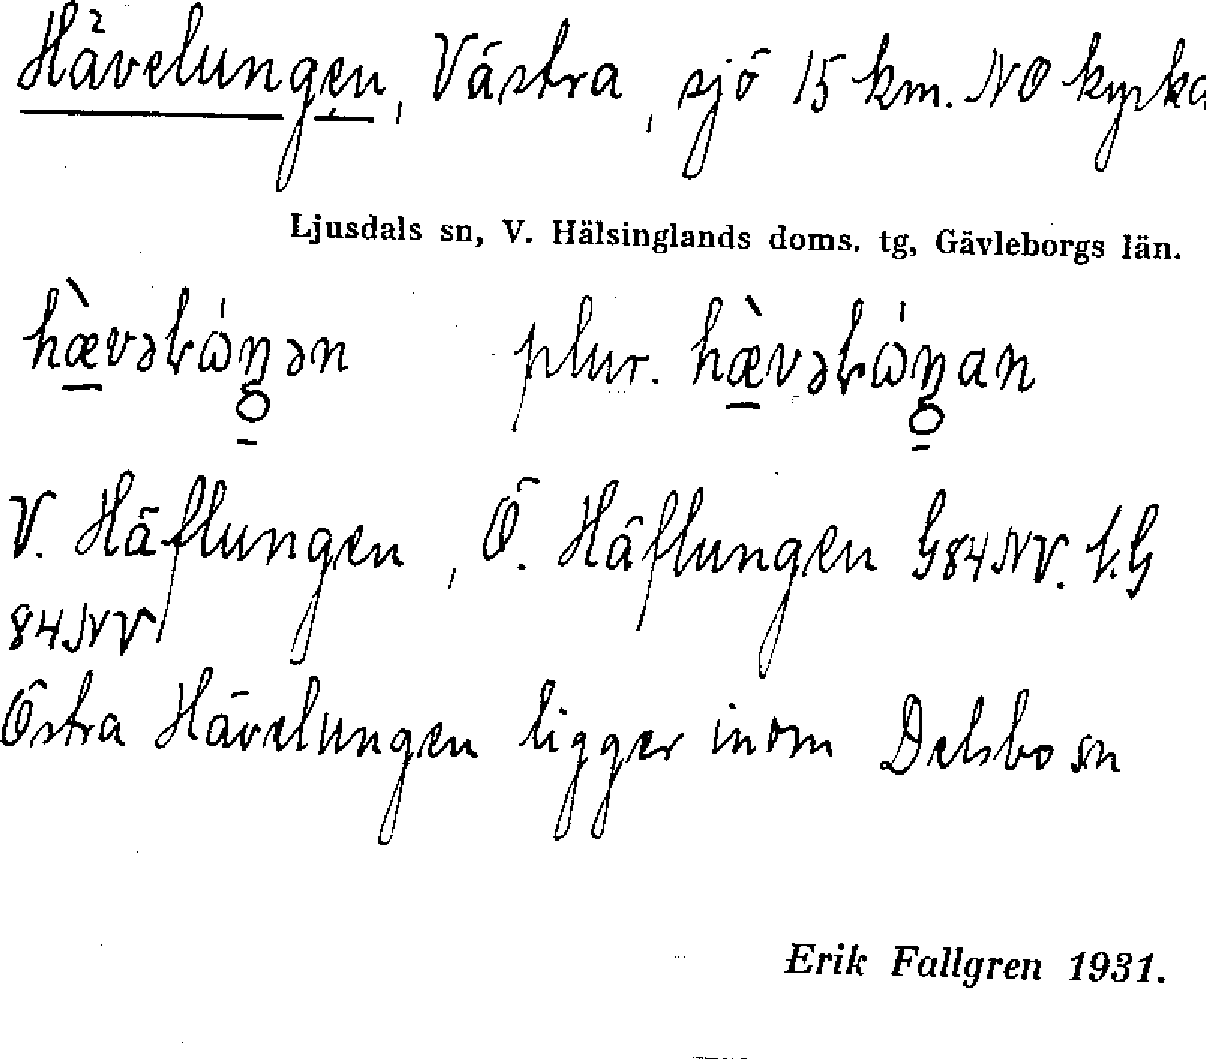 Hävelungen, Västra, sjö 15 km. NO kyrka
Ljusdals sn, V. Hälsinglands doms. tg, Gävleborgs län.
plur.
V. Häflungen, Ö. Häflungen G84NV. f.G
84NV
Östra Hävelungen ligger inom Delsbo sn
Erik Fallgren 1931.